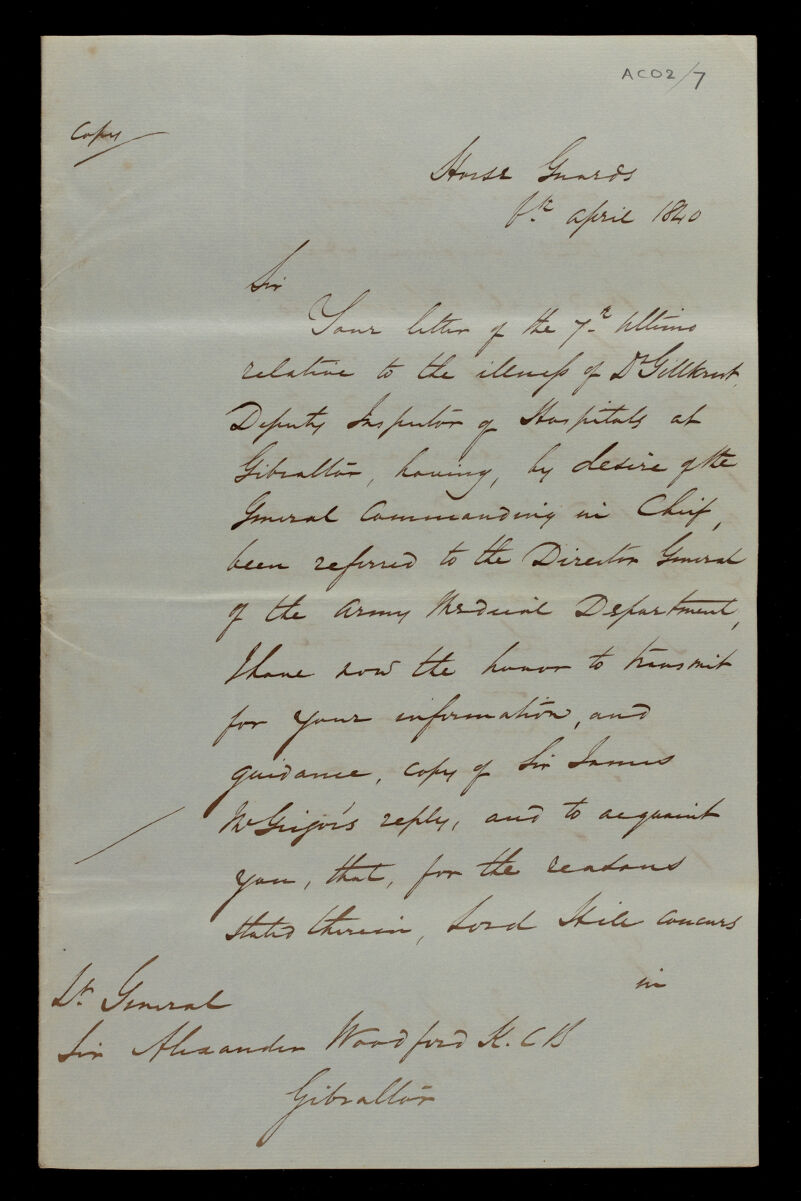 ACO2/7
Copy
Horse Guards
6th April 1840
Sir
Your letter of the 7th Ultimo
relative to the illness of Dr Gillkrest,
Deputy Inspector of Hospitals at
Gibraltar, having, by desire of the
General Commanding in Chief,
been referred to the Director General
of the Army Medical Department,
I have now the honor to transmit
for your information, and
guidance, copy of Sir James
McGrigor's reply, and to acquaint
you, that, for the reasons
stated therein, Lord Hill concurs
in
Lt. General
Sir Alexander Woodford K.C.B
Gibraltar